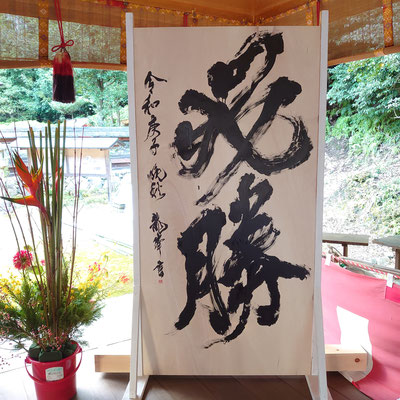 必勝
令和庚子 晩秋 龍峯書